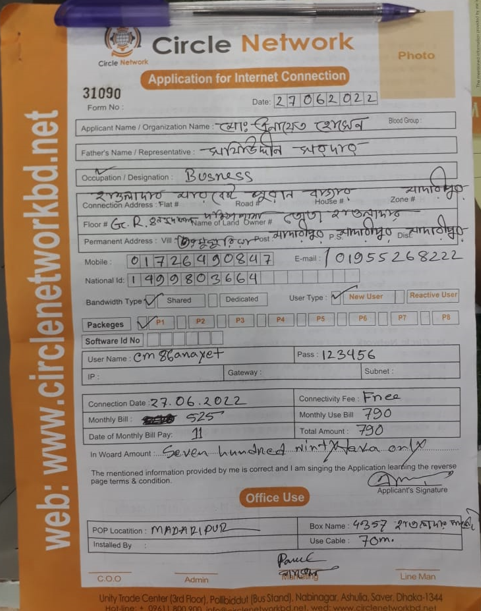 Circle Network
Circle Network
Photo
Application for Internet Connection
31090
Form No :
Date: 27062022
Applicant Name / Organization Name : মোঃ এনায়েত হোসেন Blood Group:
Father's Name / Representative :
Occupation / Designation : Busness
Connection Address : Flat # Road # House # Zone # মাদারীপুর
Floor # G.R. Name of Land Owner #
Permanent Address : Vill Post মাদারীপুর P.S মাদারীপুর Dist. মাদারীপুর
Mobile : 01726490847 E-mail : / 01955268222
National Id: 1499803664
Bandwidth Type Shared Dedicated User Type : New User Reactive User
Packeges P1 P2 P3 P4 P5 P6 P7 P8
Software Id No
User Name : cm86anayet Pass : 123456
IP : Gateway : Subnet :
Connection Date : 27.06.2022 Connectivity Fee : Free
Monthly Bill : 525 Monthly Use Bill 790
Date of Monthly Bill Pay: 11 Total Amount : 790
In Woard Amount : Seven hundred only
The mentioned information provided by me is correct and I am singing the Application learning the reverse
page terms & condition.
Applicant's Signature
Office Use
POP Locatition : MADARIPUR Box Name : 4357
Installed By : Use Cable : 70m.
C.O.O Admin Marketing Line Man
Unity Trade Center (3rd Floor), Pollibiddut (Bus Stand), Nabinagar, Ashulia, Saver, Dhaka-1344
web: www.circlenetworkbd.net